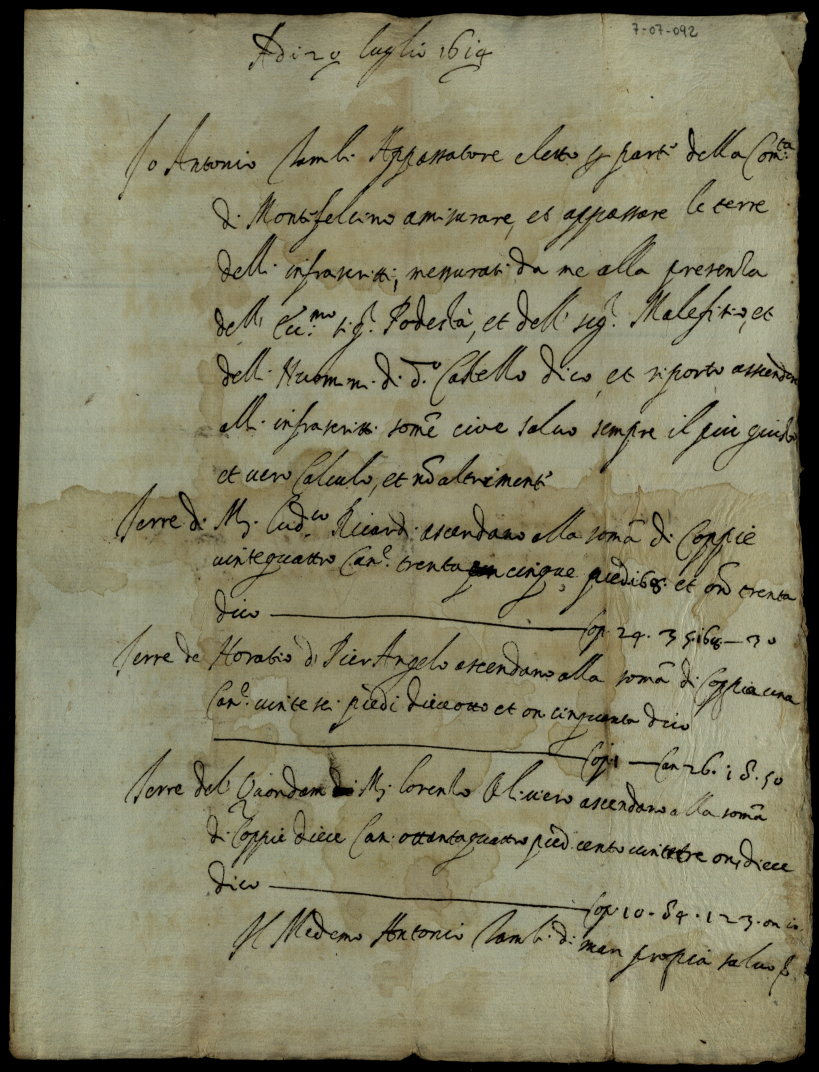 7-07-092
Adi 29 luglio 1614
Io Antonio Zambi Appassatore eletto p parte della Com.ta
di Montefelcino amisurare, et appassare le terre
delli infrascritti, messurati da me alla presenza
delli Ecc.mo sig.r Podestà, et dell' sig.r Malefitio, et
delli Huomini di d.o Castello dico, et riporto ascendere
alli infrascritti some cioe salvo sempre il piu giusto
et vero Calculo, et nõ altrimenti
Terre di M. Lud.co Ricardi ascendano alla somã di Coppie
vintequattro Can.e trenta cinque piedi 168. et on trenta
dico Cop. 24. 35. 168 — 30
Terre de Horatio di PierAngelo ascendano alla somã di Coppia una
Can.e vinte sei piedi dieceotto et on cinquanta dico
Cop. 1 — Can 26. 18. 50
Terre del Quondam M. Lorenzo Olivero ascendano alla somã
di Coppie diece Can. ottantaquattro pied. cento vintetre on. diece
dico Cop. 10. 84. 123. on 10
Il Medemo Antonio Zambi di man propia salvo